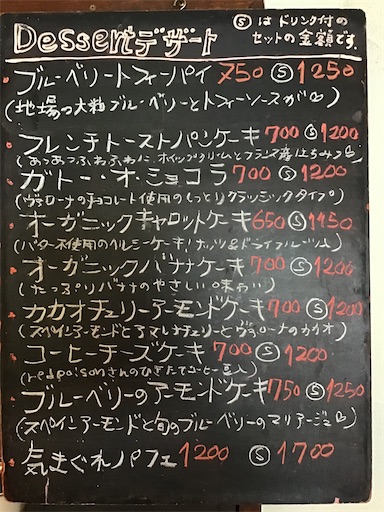 Dessertデザート
Ⓢはドリンク付の
セットの金額です。
ブルーベリートフィーパイ 750 Ⓢ 1250
(地場の大粒ブルーベリーとトフィーソースが)
フレンチトーストパンケーキ 700 Ⓢ 1200
(あつあつふわふわに ホイップクリームとフランス産はちみつ)
ガトー・オ・ショコラ 700 Ⓢ 1200
(ヴァローナのチョコレート使用のしっとりクラッシックタイプ)
オーガニックキャロットケーキ 650 Ⓢ 1150
(バター不使用のヘルシーケーキ!ナッツ&ドライフルーツ入)
オーガニックバナナケーキ 700 Ⓢ 1200
(たっぷりバナナのやさしい味わい)
カカオチェリーアーモンドケーキ 700 Ⓢ 1200
(スペインアーモンドとアマレナチェリーとヴァローナのカカオ)
コーヒーチーズケーキ 700 Ⓢ 1200
(redpoisonさんのひきたてコーヒー豆入)
ブルーベリーのアーモンドケーキ 750 Ⓢ 1250
(スペインアーモンドと旬のブルーベリーのマリアージュ)
気まぐれパフェ 1200 Ⓢ 1700